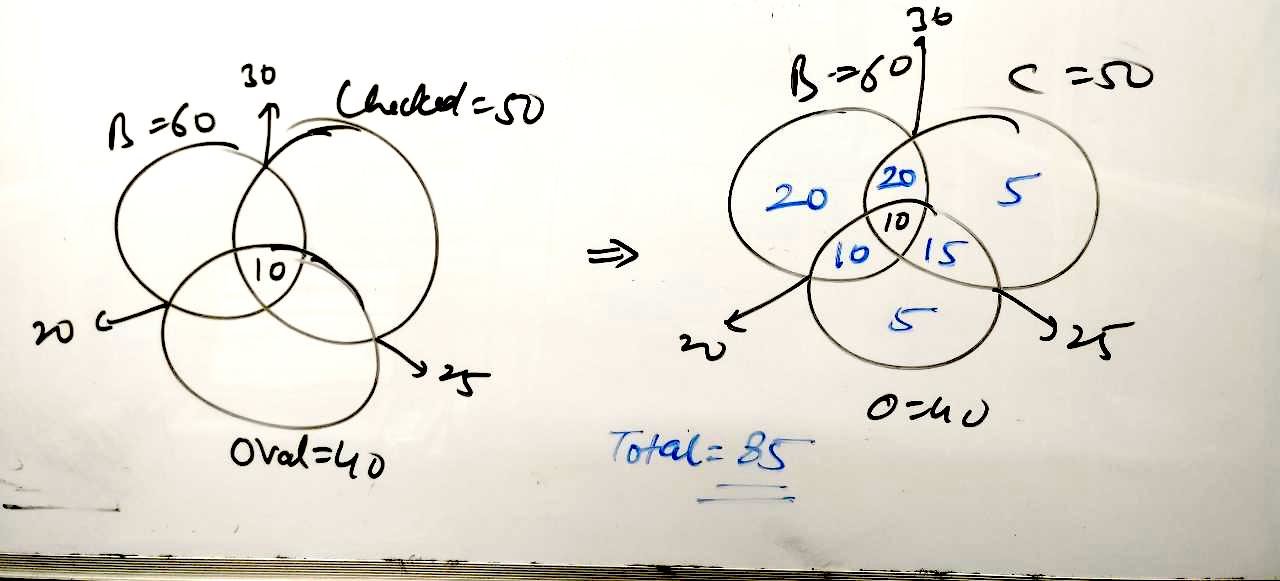 30
B = 60
Checked = 50
10
20
25
Oval = 40
⇒
30
B → 60
C = 50
20
20
5
10
10
15
5
20
25
O = 40
Total = 85